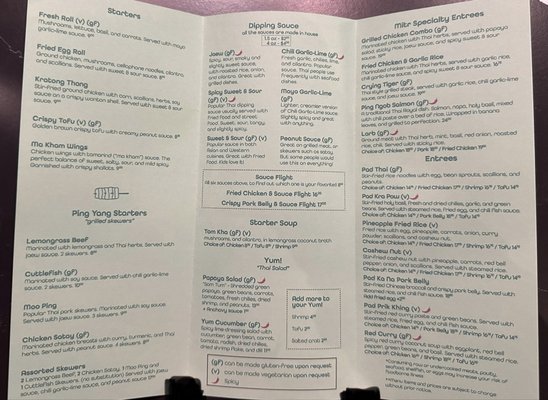 Starters
Fresh Roll (v) (gF)
Mushrooms, lettuce, basil, and carrots. Served with mayo
garlic-lime sauce.
Fried Egg Roll
Ground chicken, mushrooms, cellophane noodles, carrots,
and scallions. Served with sweet & sour sauce.
Kratong Thong
Stir-fried ground chicken with corn, scallions, herbs, soy
sauce on a crispy wonton shell. Served with sweet & sour
sauce.
Crispy Tofu (v) (gF)
Golden brown crispy tofu with creamy peanut sauce.
Ma Kham Wings
Chicken wings with tamarind ("ma kham") sauce. The
perfect balance of salty, sour, and mild spicy.
Garnished with crispy shallots.
Ping Yang Starters
"grilled skewers"
Lemongrass Beef
Marinated with lemongrass and Thai herbs. Served with
jaew sauce. 2 skewers.
Cuttlefish (gF)
Marinated with soy sauce. Served with chili garlic-lime
sauce. 2 skewers.
Moo Ping
Popular Thai pork skewers. Marinated with soy sauce.
Served with jaew sauce. 3 skewers.
Chicken Satay (gF)
Marinated chicken breasts with curry, turmeric, and Thai
herbs. Served with peanut sauce. 4 skewers.
Assorted Skewers
2 Lemongrass Beef, 2 Chicken Satay, 1 Moo Ping and
1 Cuttlefish Skewers. (no substitution) Served with jaew
sauce, chili garlic-lime sauce, and peanut sauce
Dipping Sauce
all the sauces are made in house
1.5 oz -
4 oz -
Jaew (gF)
Spicy, sour, smoky and
slightly sweet sauce,
with roasted rice, onion,
and cilantro. Great with
grilled dishes.
Spicy Sweet & Sour
(gF) (v)
Popular Thai dipping
sauce usually served with
fried food and street
food. Sweet, sour, tangy,
and slightly spicy.
Sweet & Sour (gF) (v)
Popular sauce in both
Asian and Western
cuisines. Great with fried
food. Kids love it!
Chili Garlic-Lime (gF)
Fresh garlic, chilies, lime,
and cilantro. Popular
sauce. Thai people use
frequently with seafood
dishes.
Mayo Garlic-Lime
(gF)
Lighter, creamier version
of Chili Garlic-Lime sauce.
Slightly spicy and great
with anything.
Peanut Sauce (gF)
Great on grilled meat, or
skewers such as satay.
But some people would
use this on everything!
Sauce Flight
All six sauces above, to find out which one is your favorite!
Fried Chicken & Sauce Flight
Crispy Pork Belly & Sauce Flight
Starter Soup
Tom Kha (gF) (v)
mushrooms, and cilantro, in lemongrass coconut broth.
Choice of: Chicken / Tofu / Shrimp
Yum!
"Thai Salad"
Papaya Salad (gF)
"Som Tum" - Shredded green
papaya, green beans, carrots,
tomatoes, fresh chilies, dried
shrimp, and peanuts.
+ Anchovy sauce
Yum Cucumber (gF)
Spicy lime dressing salad with
cucumber, green bean, carrot,
tomato, radish, dried chilies,
dried shrimp flake, and dill
Add more to
your Yum!
Shrimp
Tofu
Salted crab
(gF) can be made gluten-free upon request
(v) can be made vegetarian upon request
Spicy
Mitr Specialty Entrees
Grilled Chicken Combo (gF)
Marinated chicken with Thai herbs, served with papaya
salad, sticky rice, jaew sauce, and spicy sweet & sour
sauce.
Fried Chicken & Garlic Rice
Marinated chicken with Thai herbs, served with garlic rice,
chili garlic-lime sauce, and spicy sweet & sour sauce.
Crying Tiger (gF)
Thai style grilled steak, served with garlic rice, chili garlic-lime
sauce, and jaew sauce.
Ping Ngob Salmon (gF)
A traditional Thai Royal dish. Salmon, napa, holy basil, mixed
with chili paste over a bed of rice, wrapped in banana
leaves, and grilled to perfection.
Larb (gF)
Ground meat with Thai herb, mint, basil, red onion, roasted
rice, chili. Served with sticky rice.
Choice of: Chicken / Pork / Fried Chicken
Entrees
Pad Thai (gF)
Stir-fried rice noodles with egg, bean sprouts, scallions, and
peanuts.
Choice of: Chicken / Fried Chicken / Shrimp / Tofu
Pad Kra Pow (v)
Stir-fried holy basil, fresh and dried chilies, garlic, and green
beans. Served with steamed rice, fried egg, and chili fish sauce.
Choice of: Chicken / Pork Belly / Shrimp / Tofu
Pineapple Fried Rice (v)
Fried rice with egg, pineapple, carrots, onion, curry
powder, scallions, and cashew nut.
Choice of: Chicken / Fried Chicken / Shrimp / Tofu
Cashew Nut (v)
Stir-fried cashew nut with pineapple, carrots, red bell
pepper, onion, and scallions. Served with steamed rice.
Choice of: Chicken / Fried Chicken / Shrimp / Tofu
Pad Ka Na Pork Belly
Stir-fried Chinese broccoli and crispy pork belly. Served with
steamed rice, and chili fish sauce.
Add fried egg
Pad Prik Khing (v)
Stir-fried red curry paste and green beans. Served with
steamed rice, fried egg, and chili fish sauce.
Choice of: Chicken / Pork Belly / Shrimp / Tofu
Red Curry (gF)
Spicy red curry coconut soup with eggplant, red bell
pepper, green beans, and basil. Served with steamed rice.
Choice of: Chicken / Fried Chicken / Shrimp / Tofu
Consuming raw or undercooked meats, poultry,
seafood, shellfish, or eggs may increase your risk of
foodborne illness.
*Menu items and prices are subject to change
without prior notice.